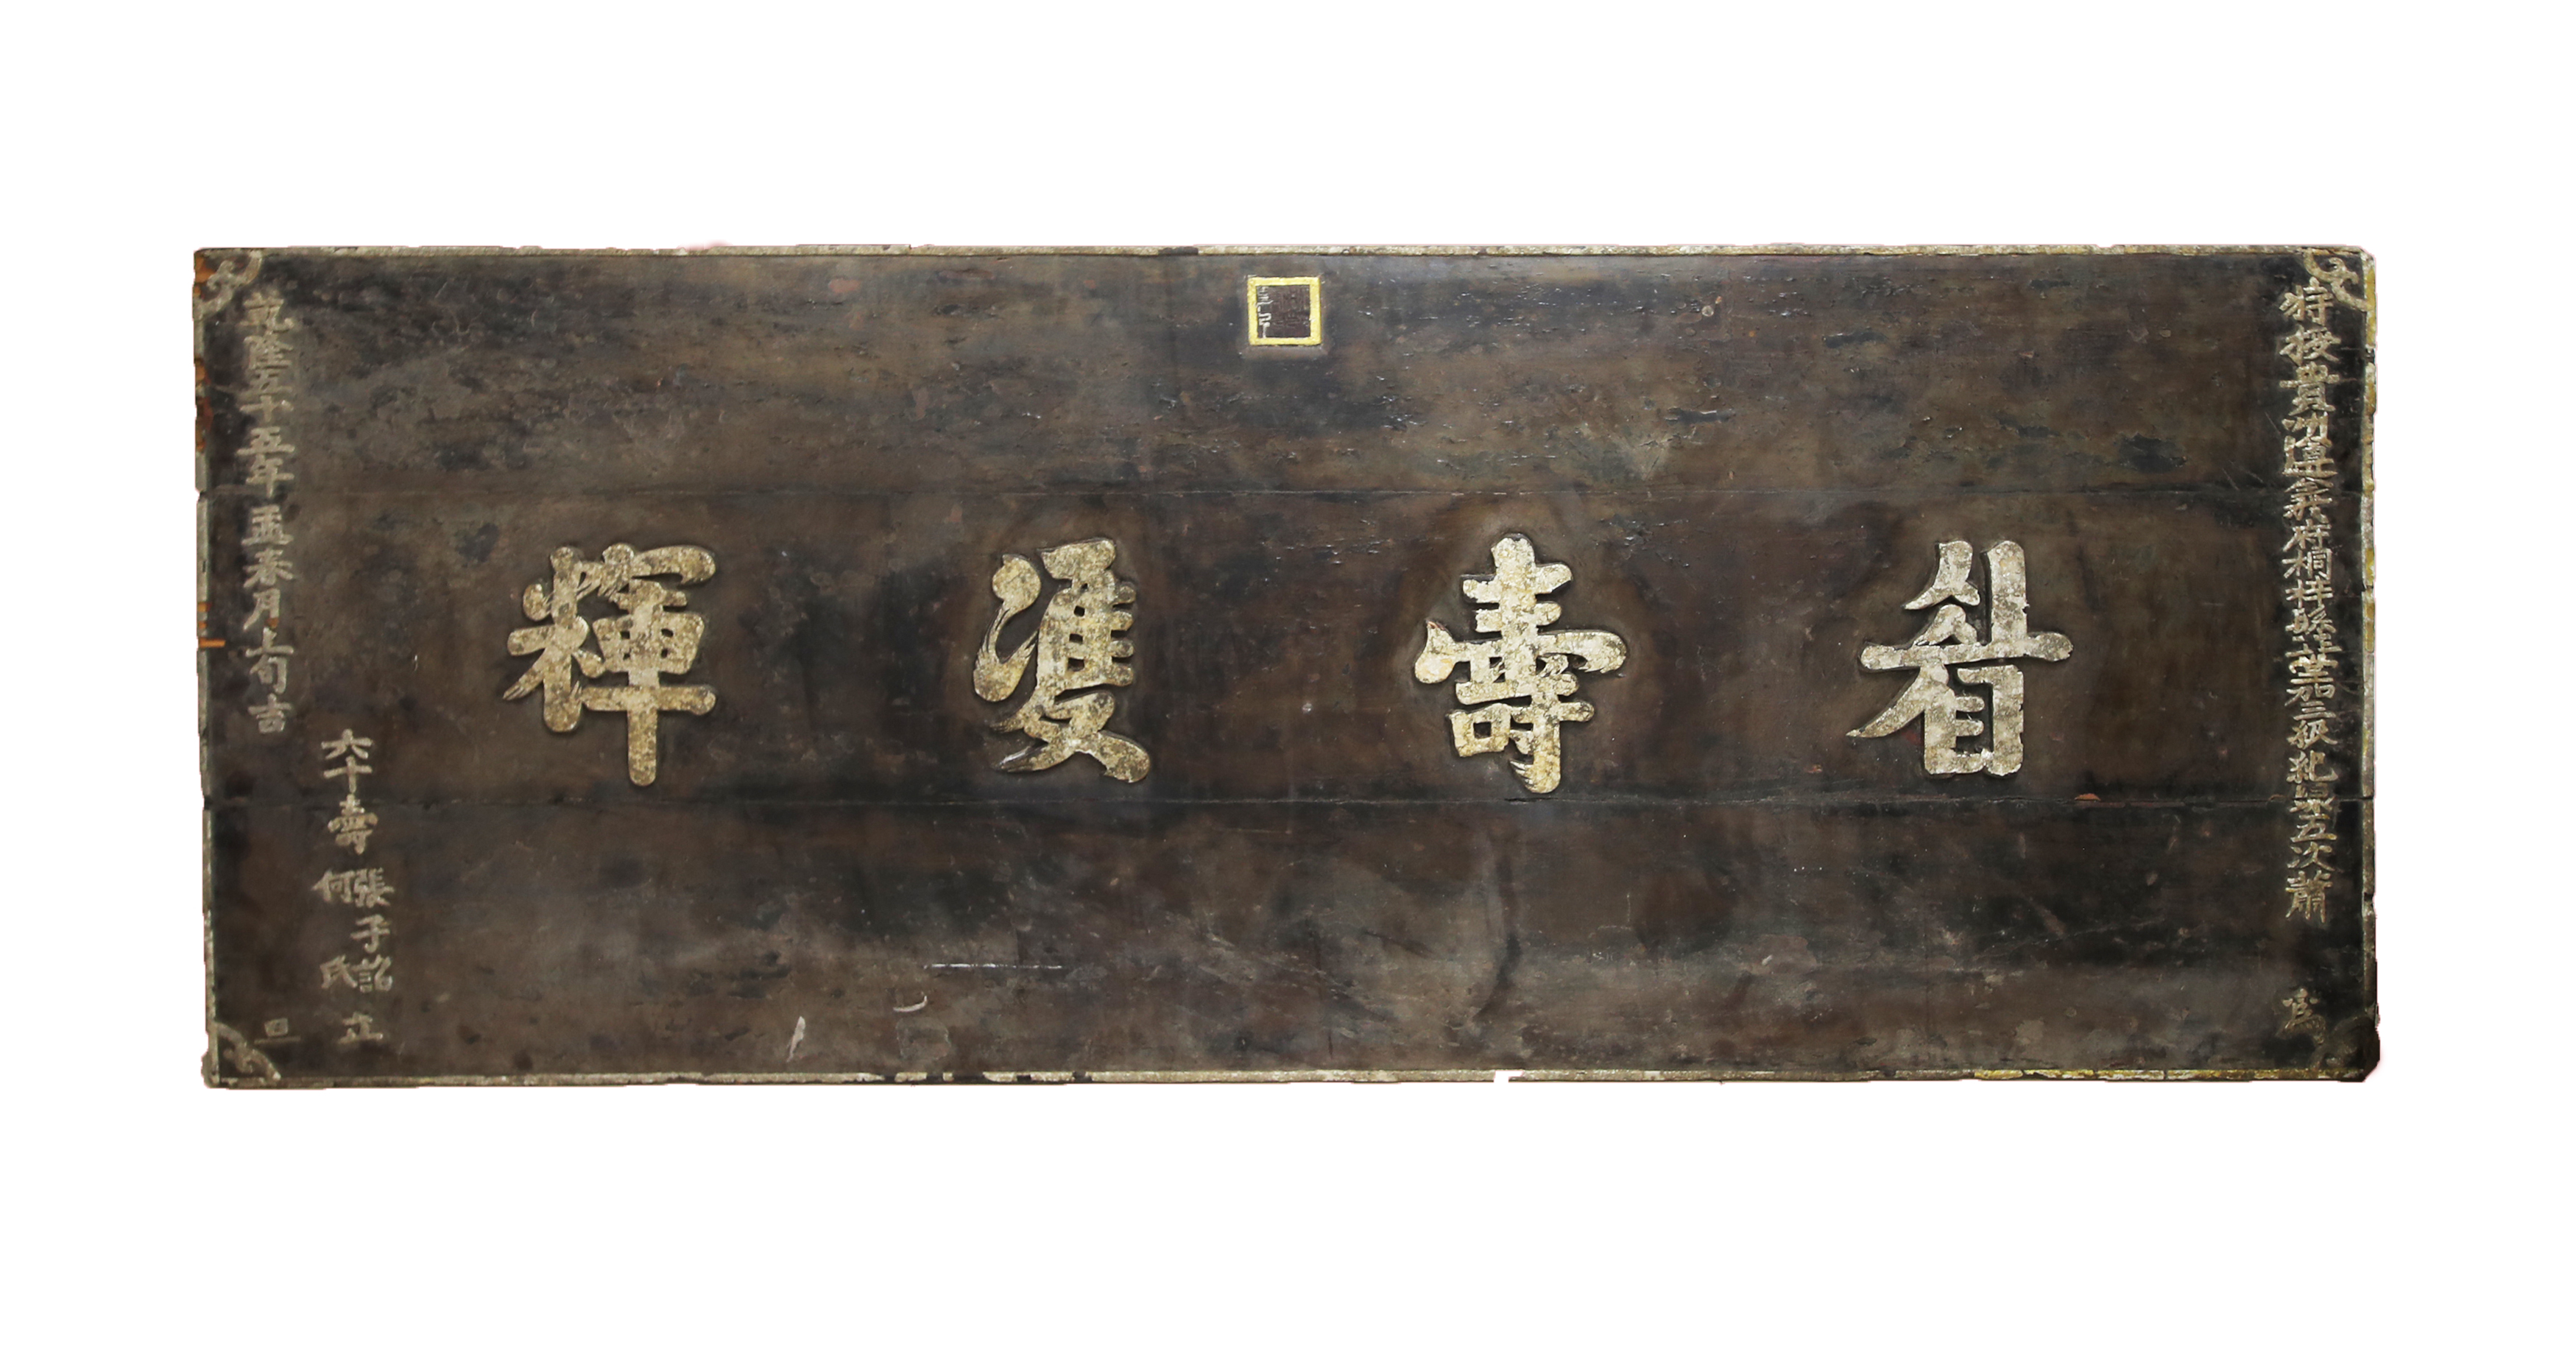 特授貴州遵義府桐梓縣正堂加三級紀錄五次蕭 為
眉壽雙輝
六十壽 張子詔 何氏 立
乾隆五十五年孟春月上旬吉 旦